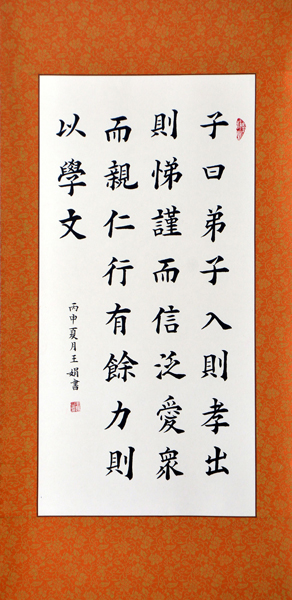 子曰弟子入則孝出
則悌謹而信泛愛衆
而親仁行有餘力則
以學文
丙申夏月王娟書